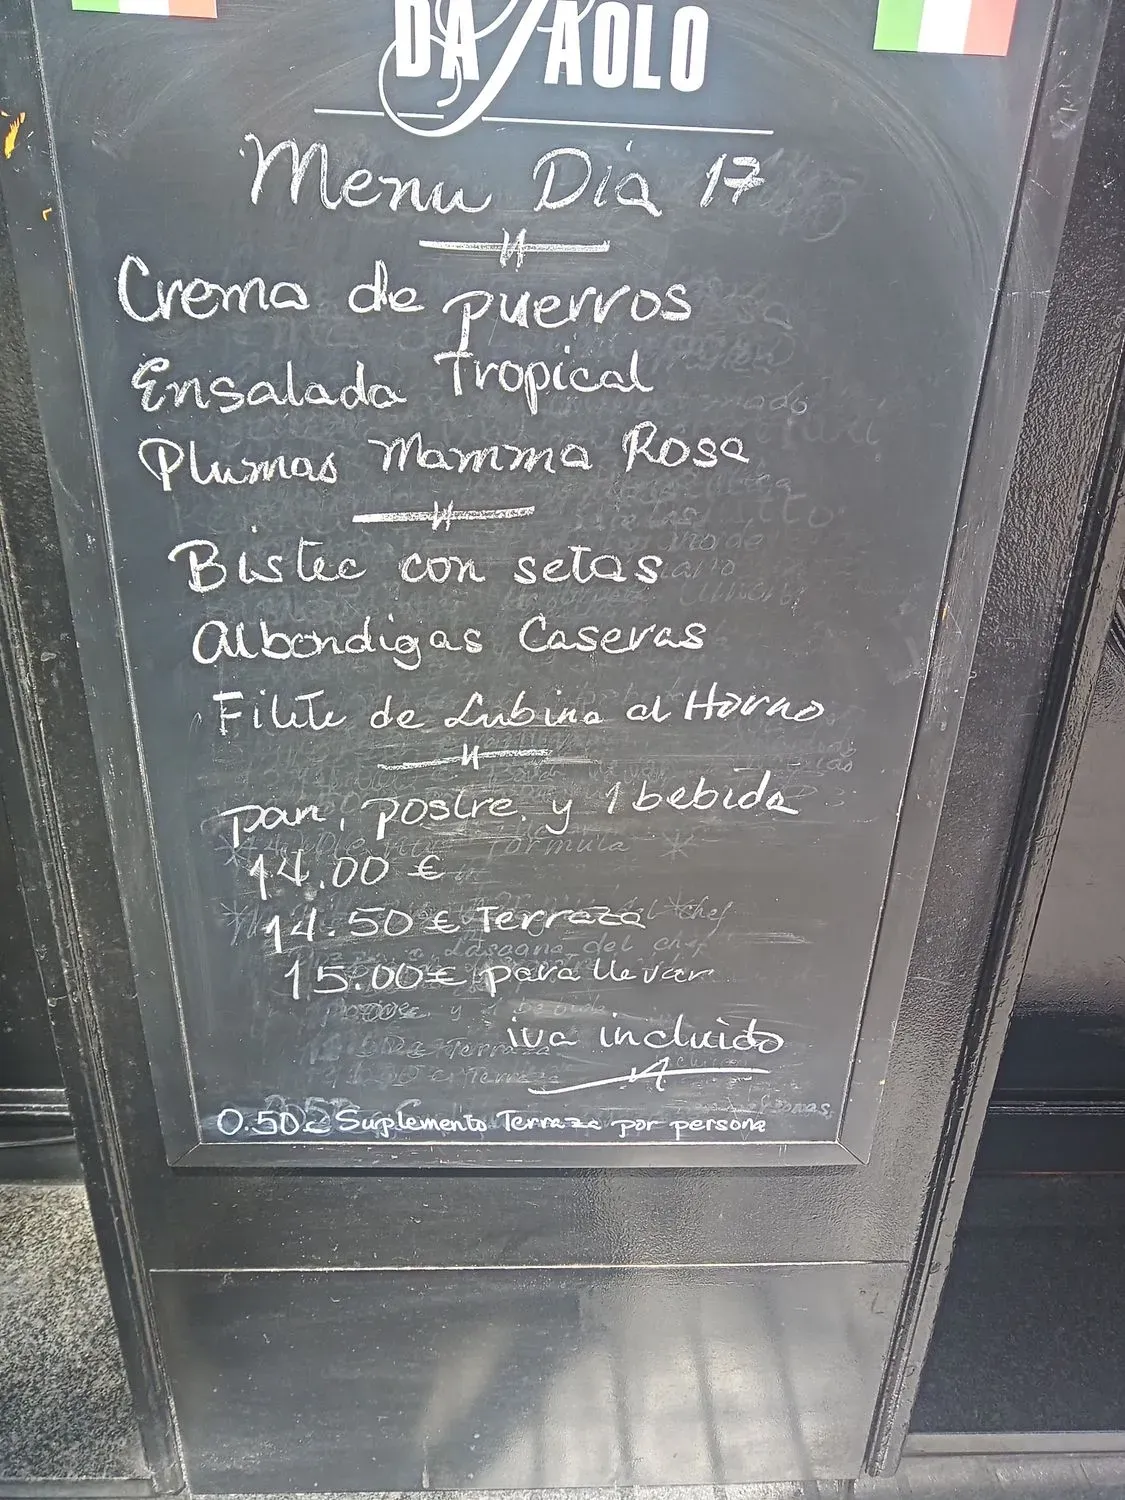 DA PAOLO
Menu Dia 17
Crema de puerros
Ensalada Tropical
Plumas Mamma Rosa
Bistec con setas
Albondigas Caseras
Filete de Lubina al Horno
pan, postre, y 1 bebida
14.00 €
14.50 € Terraza
15.00 € para llevar
iva incluido
0.50 € Suplemento Terraza por persona